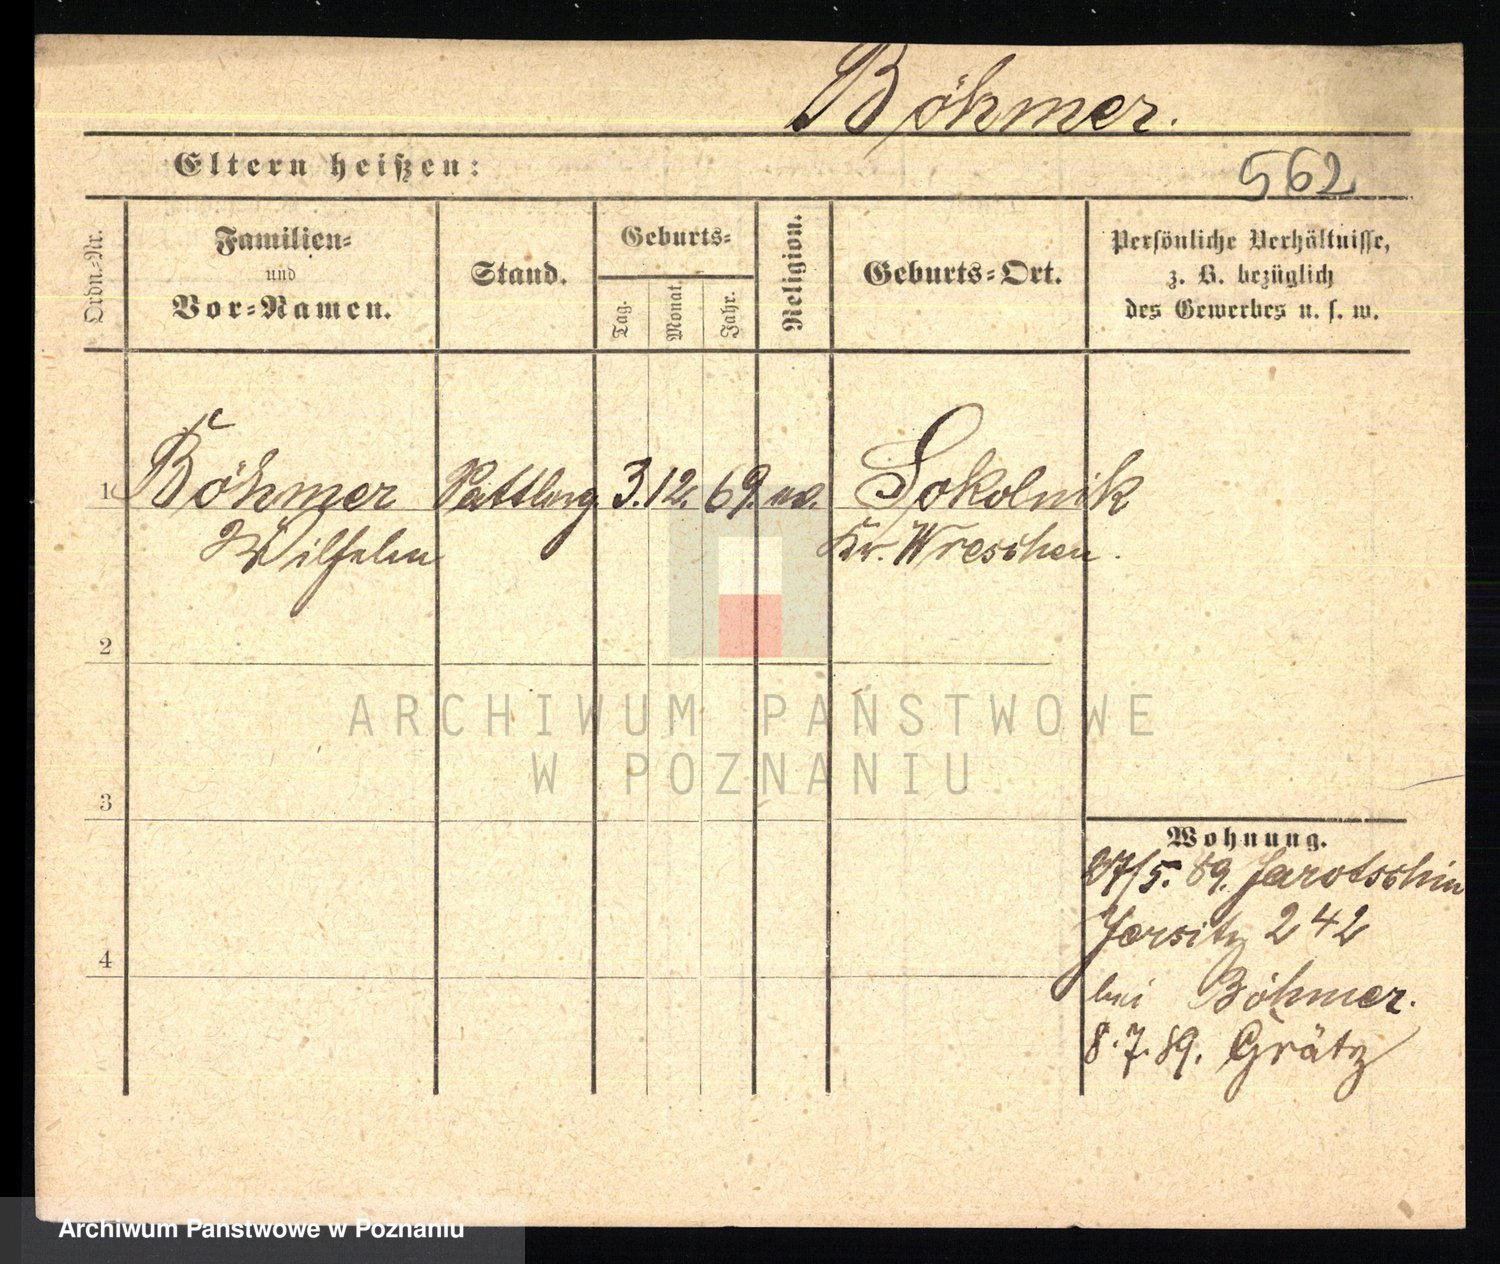 Böhmer.
Eltern heißen:
562
Ordn.-Nr.
Familien-
und
Vor-Namen.
Stand.
Geburts-
Tag.
Monat.
Jahr.
Religion.
Geburts-Ort.
Persönliche Verhältnisse,
z. B. bezüglich
des Gewerbes u. s. w.
1 Böhmer 3. 12. 69. ev. Sokolnik
Wilhelm Kr. Wreschen.
2
ARCHIWUM PAŃSTWOWE
W POZNANIU
3
4
Wohnung.
/5. 89. Jarotschin
Jersitz 242
bei Böhmer.
8. 7. 89. Grätz
Archiwum Państwowe w Poznaniu